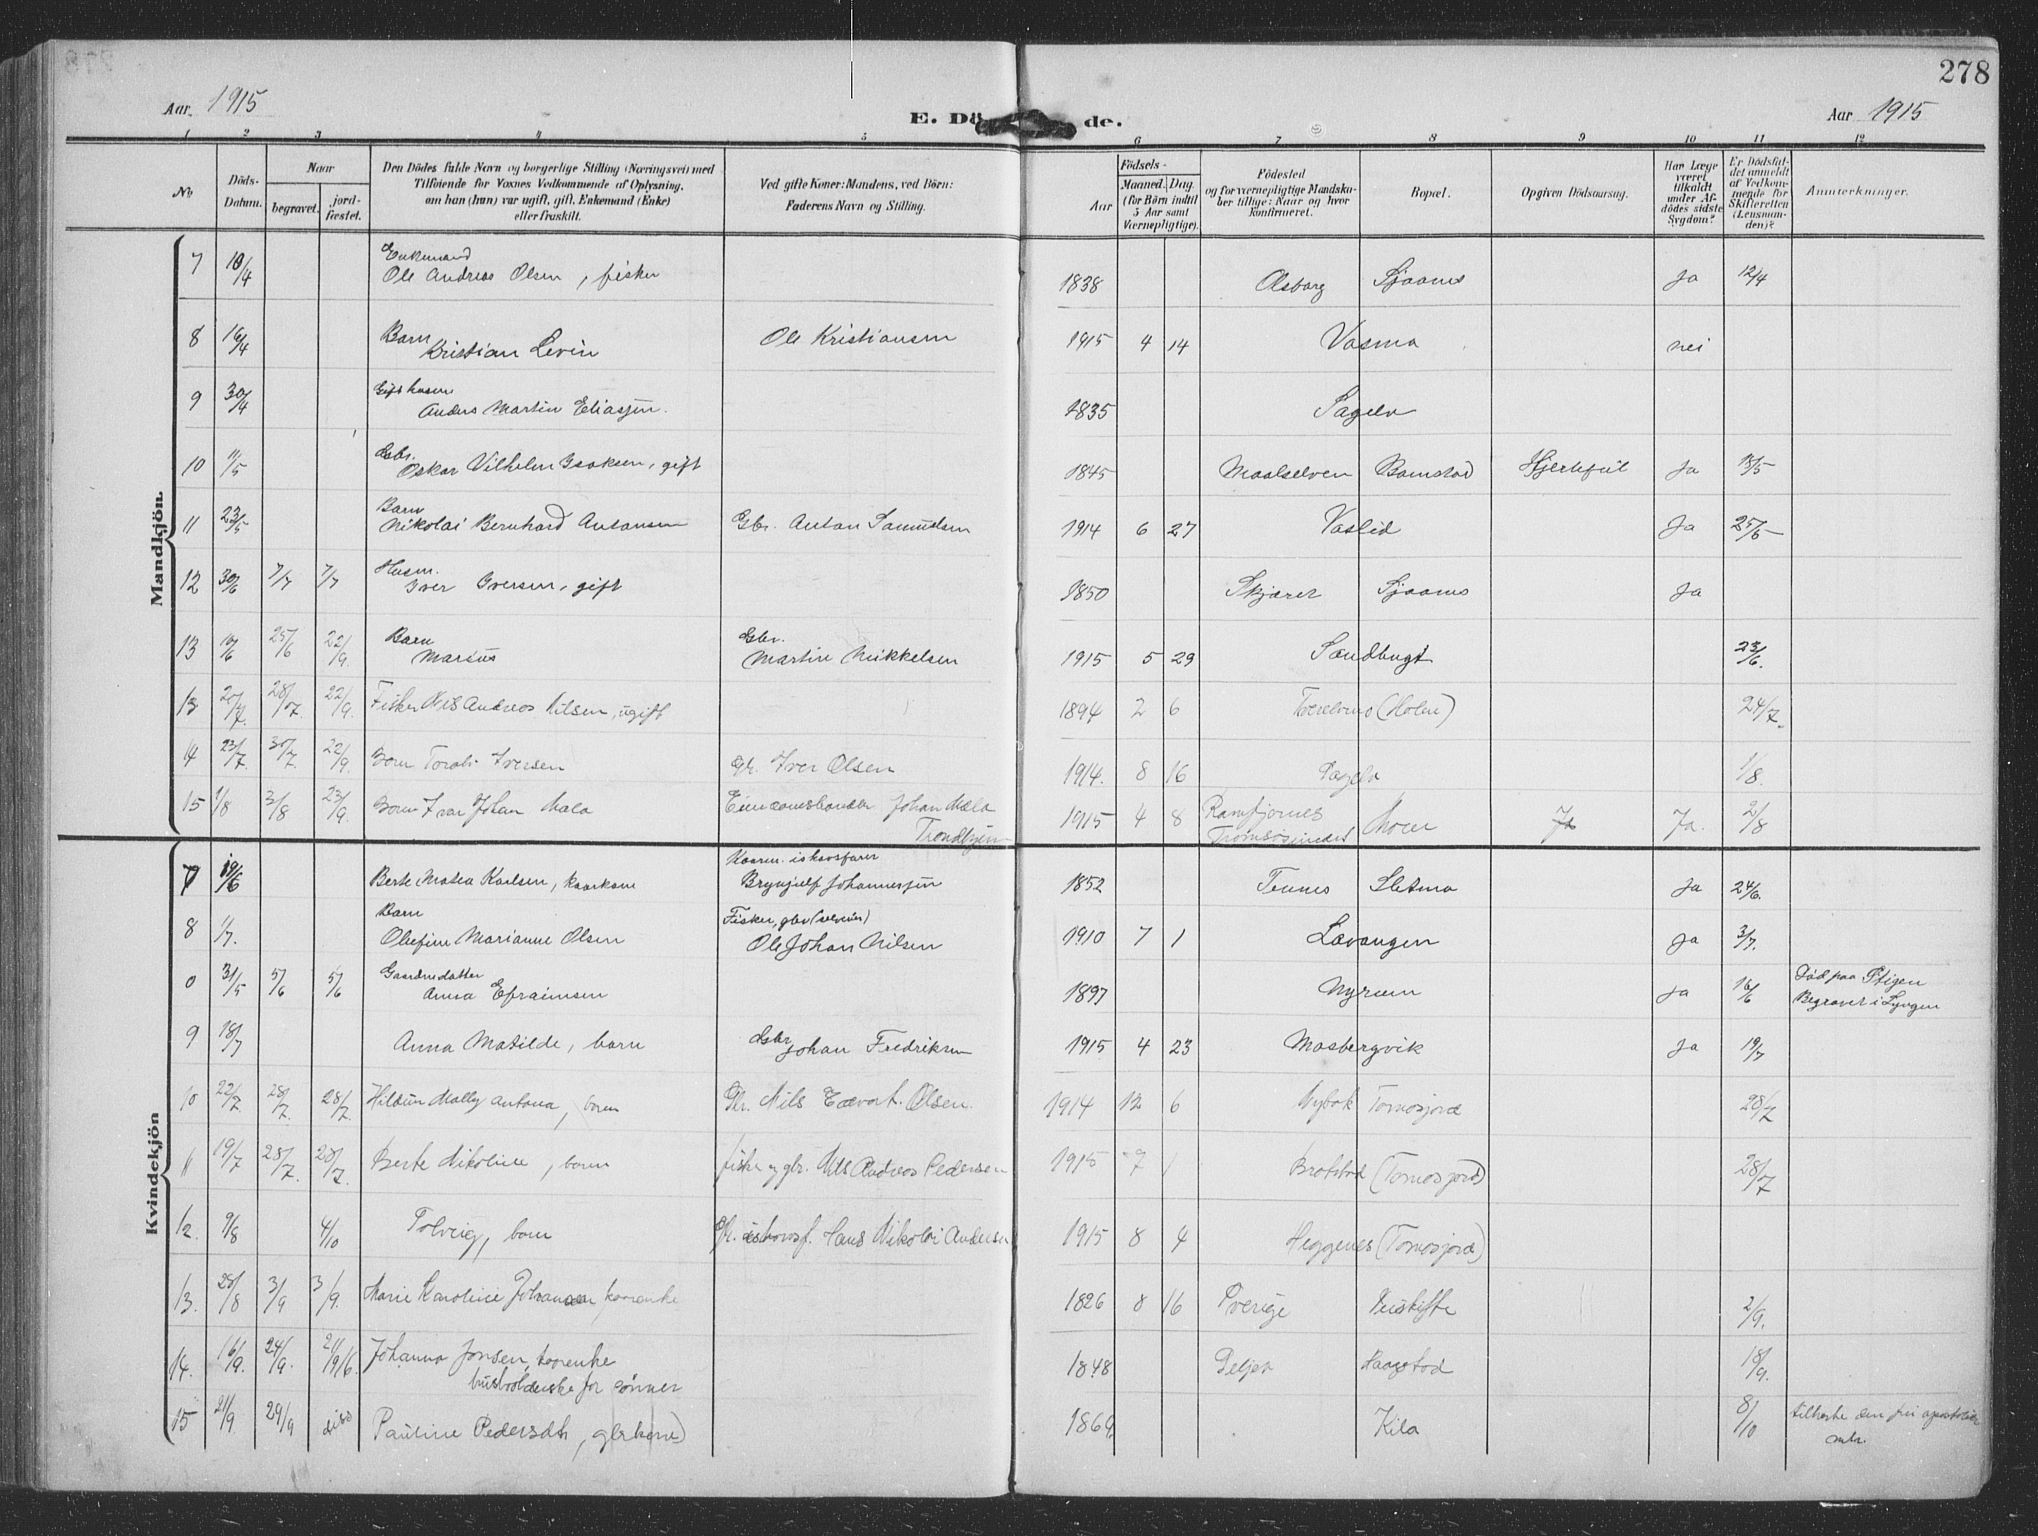 278
Aar 1915
E. Dö de.
Aar 1915
1 2 3 4 5 6 7 8 9 10 11 12
No.
Döds-Datum.
Naar
begravet.
jord-fæstet.
Den Dödes fulde Navn og borgerlige Stilling (Næringsvei) med
Tilföiende for Voxnes Vedkommende af Oplysning,
om han (hun) var ugift, gift, Enkemand (Enke)
eller fraskilt.
Ved gifte Koner: Mandens, ved Börn:
Faderens Navn og Stilling.
Födsels-
Aar
Maaned. Dag.
(for Börn indtil
5 Aar samt
Værnepligtige).
Födested
og for værnepligtige Mandska-
ber tillige: Naar og hvor
konfirmeret.
Bopæl.
Opgiven Dödsaarsag.
Har Læge
været
tilkaldt
under Af-
dödes sidste
Sygdom?
Er Dödsfal-
det anmeldt
af Vedkom-
mende for
Skifteretten
(Lensman-
den)?
Anmærkninger.
Mandkjön.
7 10/4 Enkemand
Ole Andreas Olsen, fisker 1838 Olsborg Sjaanes Ja 12/4
8 16/4 Barn
Kristian Levin Ole Kristiansen 1915 4 14 Vasmo nei
9 30/4 Gift husm
Anders Martin Eliassen. 1835 Sagelv
10 11/5 Gbr.
Oskar Vilhelm Isaksen, gift 1845 Maalselven Bomstad Hjertefeil Ja 18/5
11 23/5 Barn
Nikolai Bernhard Antonsen Gbr. Anton Samuelsen 1914 6 27 Vaslid Ja 25/5
12 30/6 7/7 7/7 Husm.
Iver Iversen, gift 1850 Skjæret Sjaanes Ja
13 10/6 25/6 22/9 Barn
Marius Gbr.
Martin Mikkelsen 1915 5 29 Sandbugt 23/6.
13 20/7. 28/07. 22/9. Fisker Nils Andreas Nilsen, ugift 1894 2 6 (Holm) 24/7.
14 23/7. 30/7. 22/9. Barn Iversen Gbr. Iver Olsen 1914. 8 16 Sagelv 1/8.
15 1/8 3/8 23/9. Barn Ivar Johan Mælo Johan Mælo
Trondhjem 1915 4 8 Ramfjordnes
Tromsøsundet Moen Ja Ja. 2/8
Kvindekjön
7 19/6 Berte Matea Karlsen, kaarkone Kaarm. ishavsfarer
Brynjulf Johannessen 1852 Tennes Sletmo Ja 24/6.
8 1/7. Barn
Olufine Marianne Olsen Fisker, gbr (selveier)
Ole Johan Nilsen 1910 7 1 Lavangen Ja 3/7.
0 31/5 5/6 5/6 Gaardmdatter
Anna Efraimsen 1897 Nyrum Ja 16/6 Død paa Stigen
Begravet i Lyngen
9 18/7 Anna Matilde, barn Gbr
Johan Fredriksen 1915 4 23 Mosbergvik Ja 19/7
10 22/7. 28/7. 28/7. Hildur Molly Antona, barn Gbr. Nils Edvart. Olsen. 1914 12 6 Nybak Tomasjord 28/7
11 19/7 28/7. 28/7. Berte Nikoline, barn fisker og gbr. Nils Andreas Pedersen 1915 7 1 Brotstad (Tomasjord) 28/7
12. 9/8 4/10 Solveig, barn Gbr. ishavsf. Hans Nikolai Andersen 1915 8 4 Heggenes (Tomasjord)
13. 28/8 3/9 3/9. Marie Karoline Johansen, kaarenke 1826 8 16 Sverige Nuskifte 2/9.
14. 16/9. 24/9. 21/9 16. Johanna Jonsen, kaarenke
husholderske for sønner 1848 Seljen Haagstad 18/9.
15 21/9 29/9 Pauline Pedersdtr, gbrkone) 1869 Kila 8/10 tilhørte den fri apostoliske